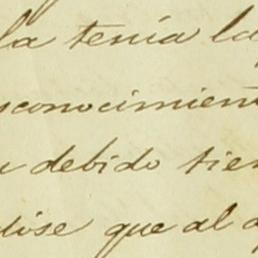 la tenía la
sconocimient
debido tiem
dose que al